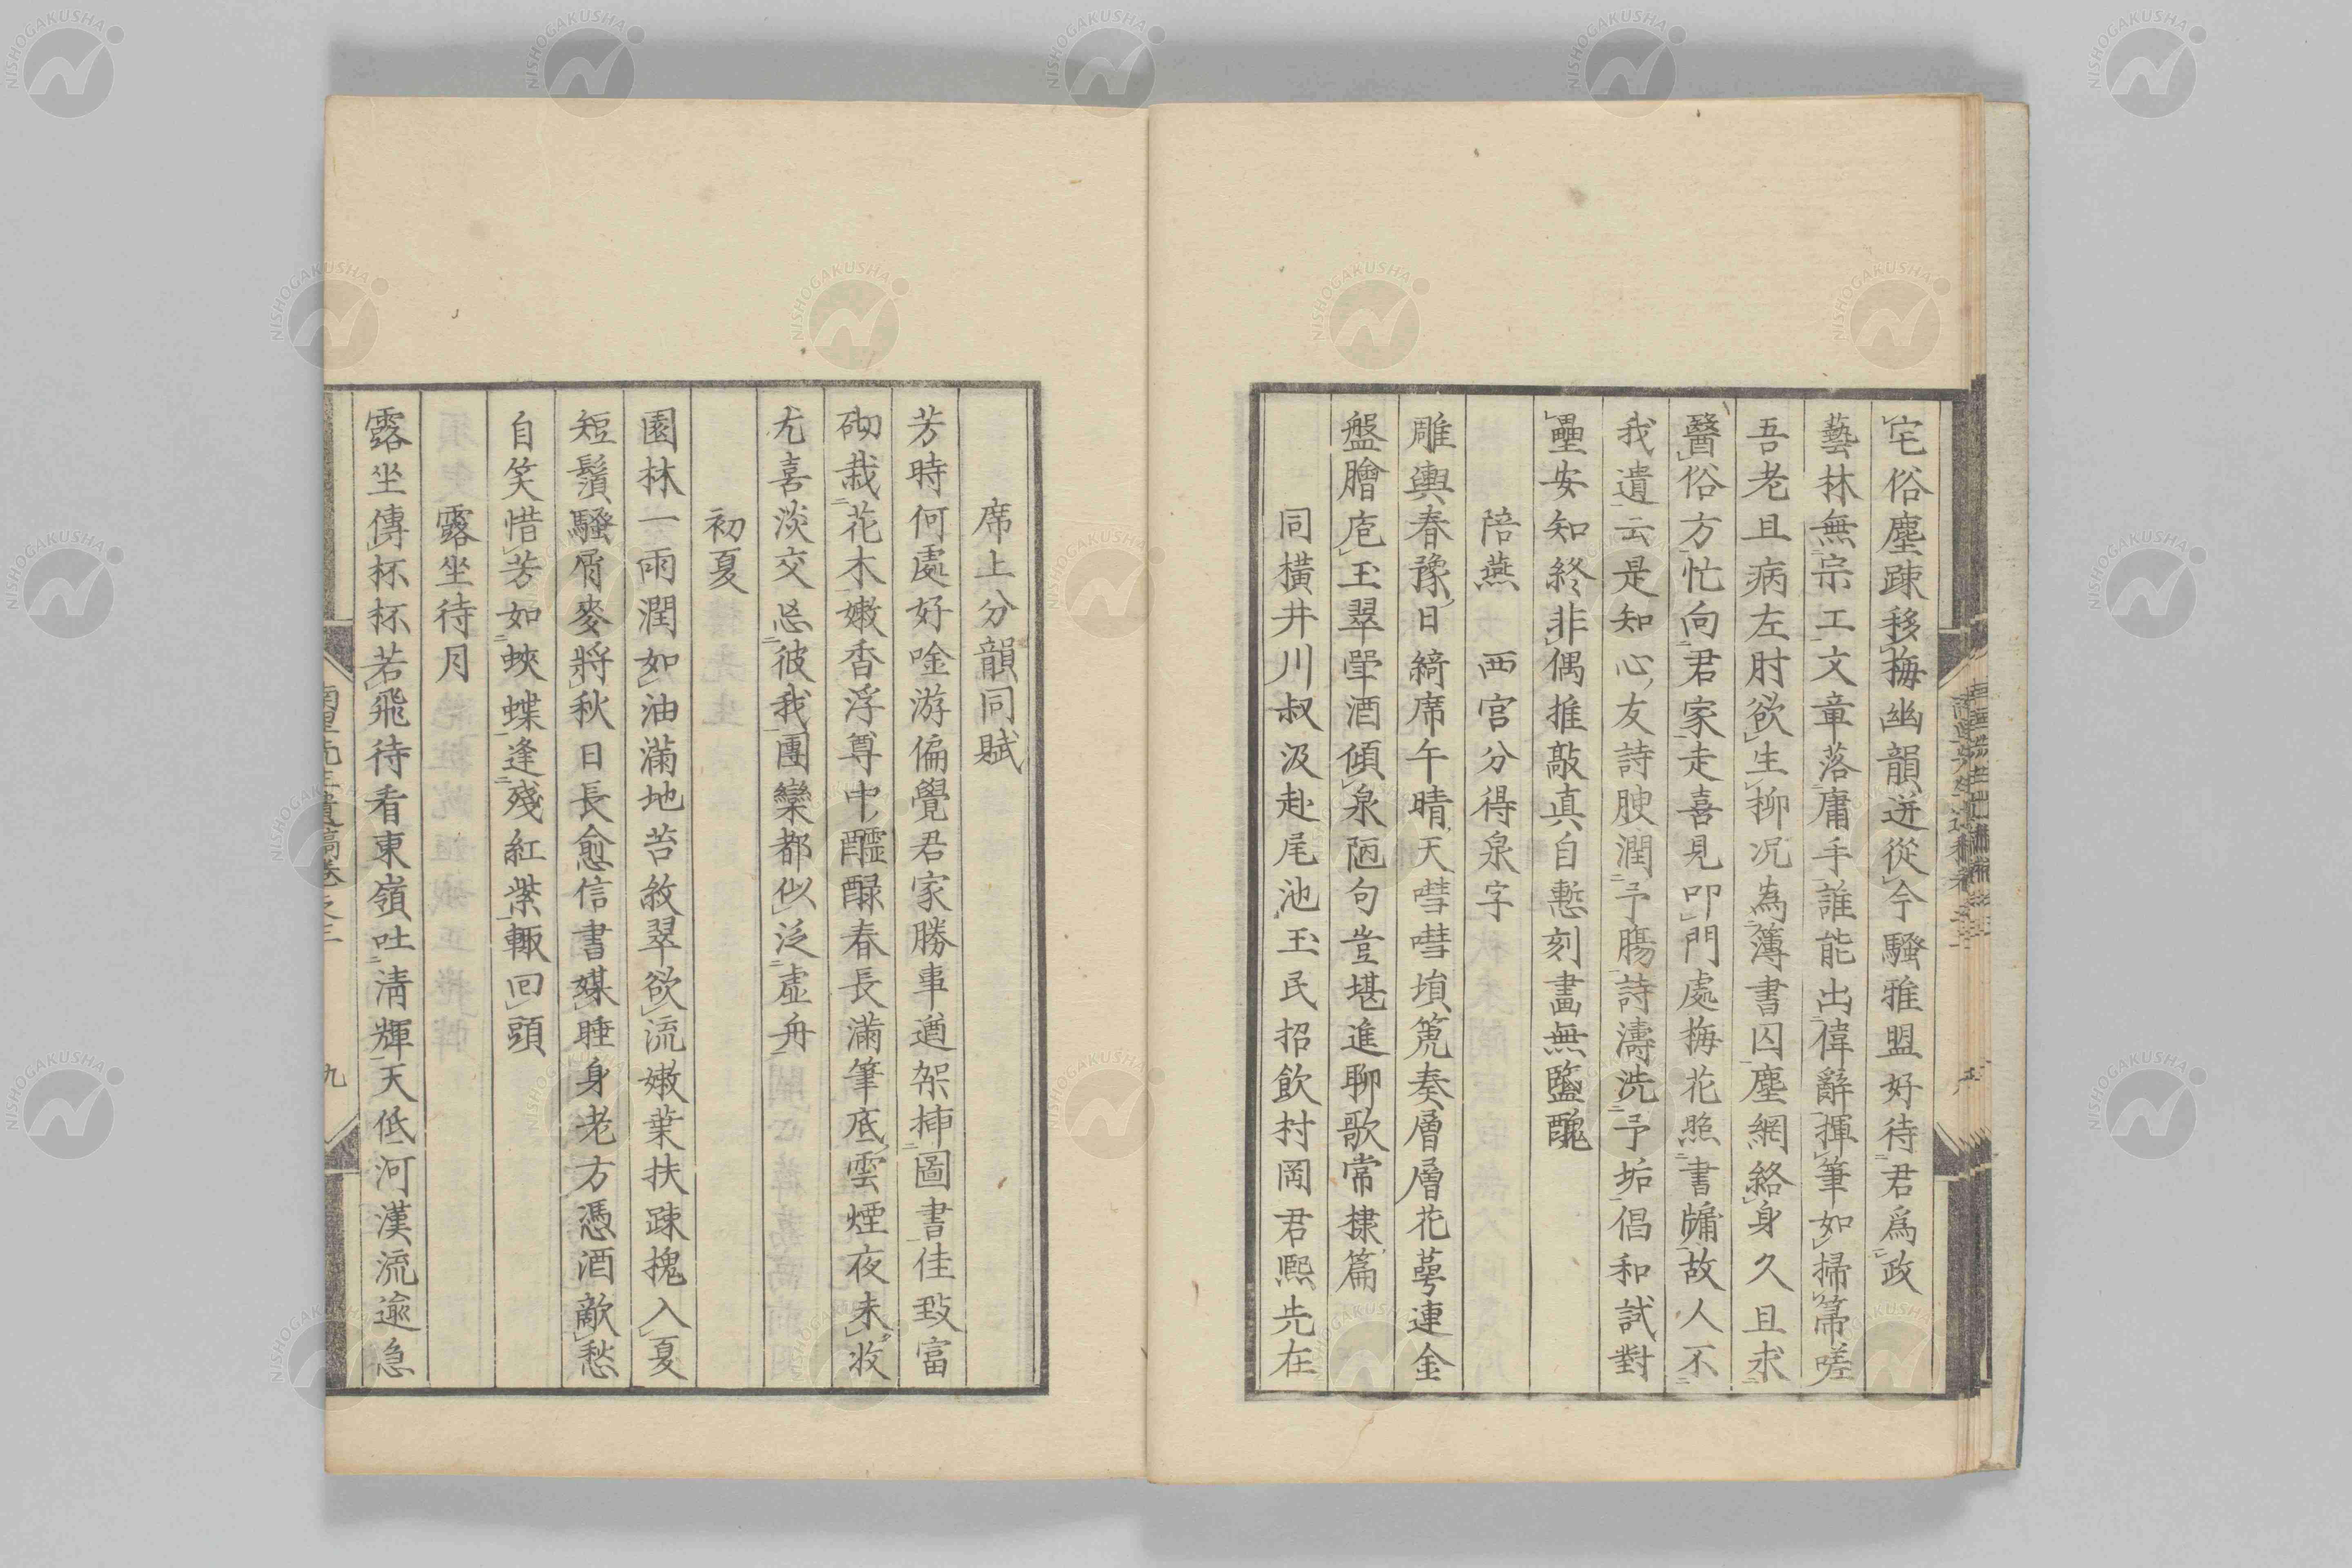 宅俗塵疎移梅幽韻迸從今騷雅盟好待君爲政
藝林無宗工文章落庸手誰能出偉辭揮筆如掃箒嗟
吾老且病左肘欲生柳况為簿書囚塵網絡身久且求
醫俗方忙向君家走喜見叩門處梅花照書牗故人不
我遺云是知心友詩腴潤予腸詩濤洗予垢倡和試對
壘安知終非偶推敲真自慙刻畫無鹽醜
陪燕 西宮分得泉字
雕輿春豫日綺席午晴天嘒嘒塤篪奏層層花萼連金
盤膾庖玉翠斝酒傾泉陋句豈堪進聊歌常棣篇
同橫井川叔汲赴尾池玉民招飲村岡君熙先在
席上分韻同賦
芳時何處好唫游偏覺君家勝事遒架揷圖書佳致富
砌栽花木嫩香浮尊中醽醁春長滿筆底雲煙夜未收
尤喜淡交忘彼我團欒都似泛虛舟
初夏
園林一雨潤如油滿地苔紋翠欲流嫩葉扶疎槐入夏
短鬚騷屑麥將秋日長愈信書媒睡身老方憑酒敵愁
自笑惜芳如蛺蝶逢殘紅紫輙回頭
露坐待月
露坐傳杯杯若飛待看東嶺吐淸輝天低河漢流逾急
九
NISHOGAKUSHA